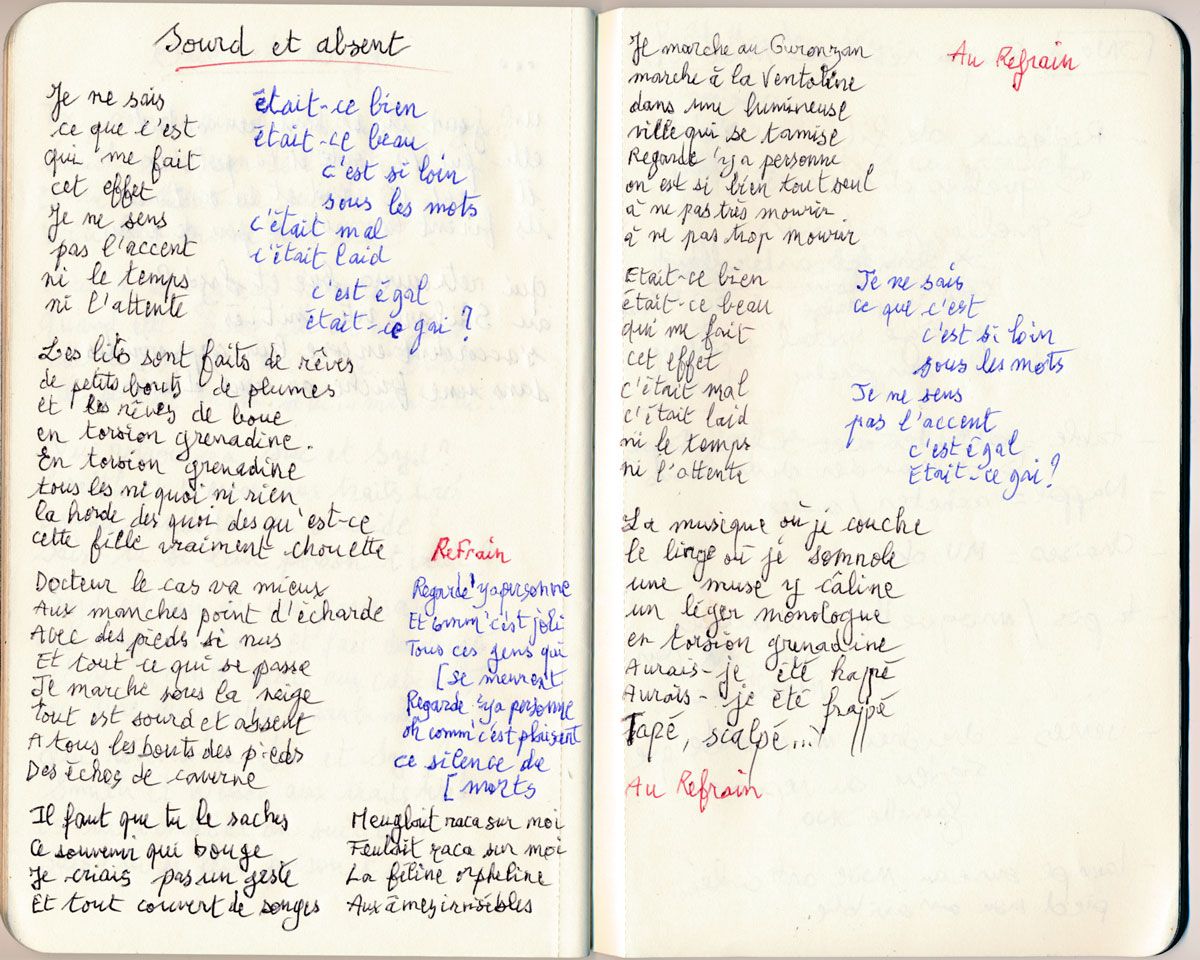 Sourd et absent
Je ne sais
ce que c'est
qui me fait
cet effet
Je ne sens
pas l'accent
ni le temps
ni l'attente
était-ce bien
était-ce beau
c'est si loin
sous les mots
c'était mal
c'était laid
c'est égal
était-ce gai ?
Les lits sont faits de rêves
de petits bouts de plumes
et les rêves de boue
en torsion grenadine.
En torsion grenadine
tous les ni quoi ni rien
la horde des quoi des qu'est-ce
cette fille vraiment chouette
Docteur le cas va mieux
Aux manches point d'écharde
Avec des pieds si nus
Et tout ce qui se passe
Je marche sous la neige
tout est sourd et absent
A tous les bouts des pieds
Des échos de caverne
Refrain
Regarde 'ya personne
Et comm' c'est joli
Tous ces gens qui
[se meurent
Regarde 'ya personne
oh comm' c'est plaisant
ce silence de
[morts
Il faut que tu le saches
Ce souvenir qui bouge
Je criais pas un geste
Et tout couvert de songes
Meuglait raca sur moi
Feulait raca sur moi
La féline orpheline
Aux âmes irrisibles
Je marche au Guronzan
marche à la Ventoline
dans une lumineuse
ville qui se tamise
Regarde 'ya personne
on est si bien tout seul
à ne pas très mourir
à ne pas trop mourir
Au Refrain
Etait-ce bien
était-ce beau
qui me fait
cet effet
c'était mal
c'était laid
ni le temps
ni l'attente
Je ne sais
ce que c'est
c'est si loin
sous les mots
Je ne sens
pas l'accent
c'est égal
Etait-ce gai ?
La musique où je couche
le linge où je somnole
une muse y câline
un léger monologue
en torsion grenadine
Aurais-je été happé
Aurais-je été frappé
Tapé, scalpé...?
Au Refrain